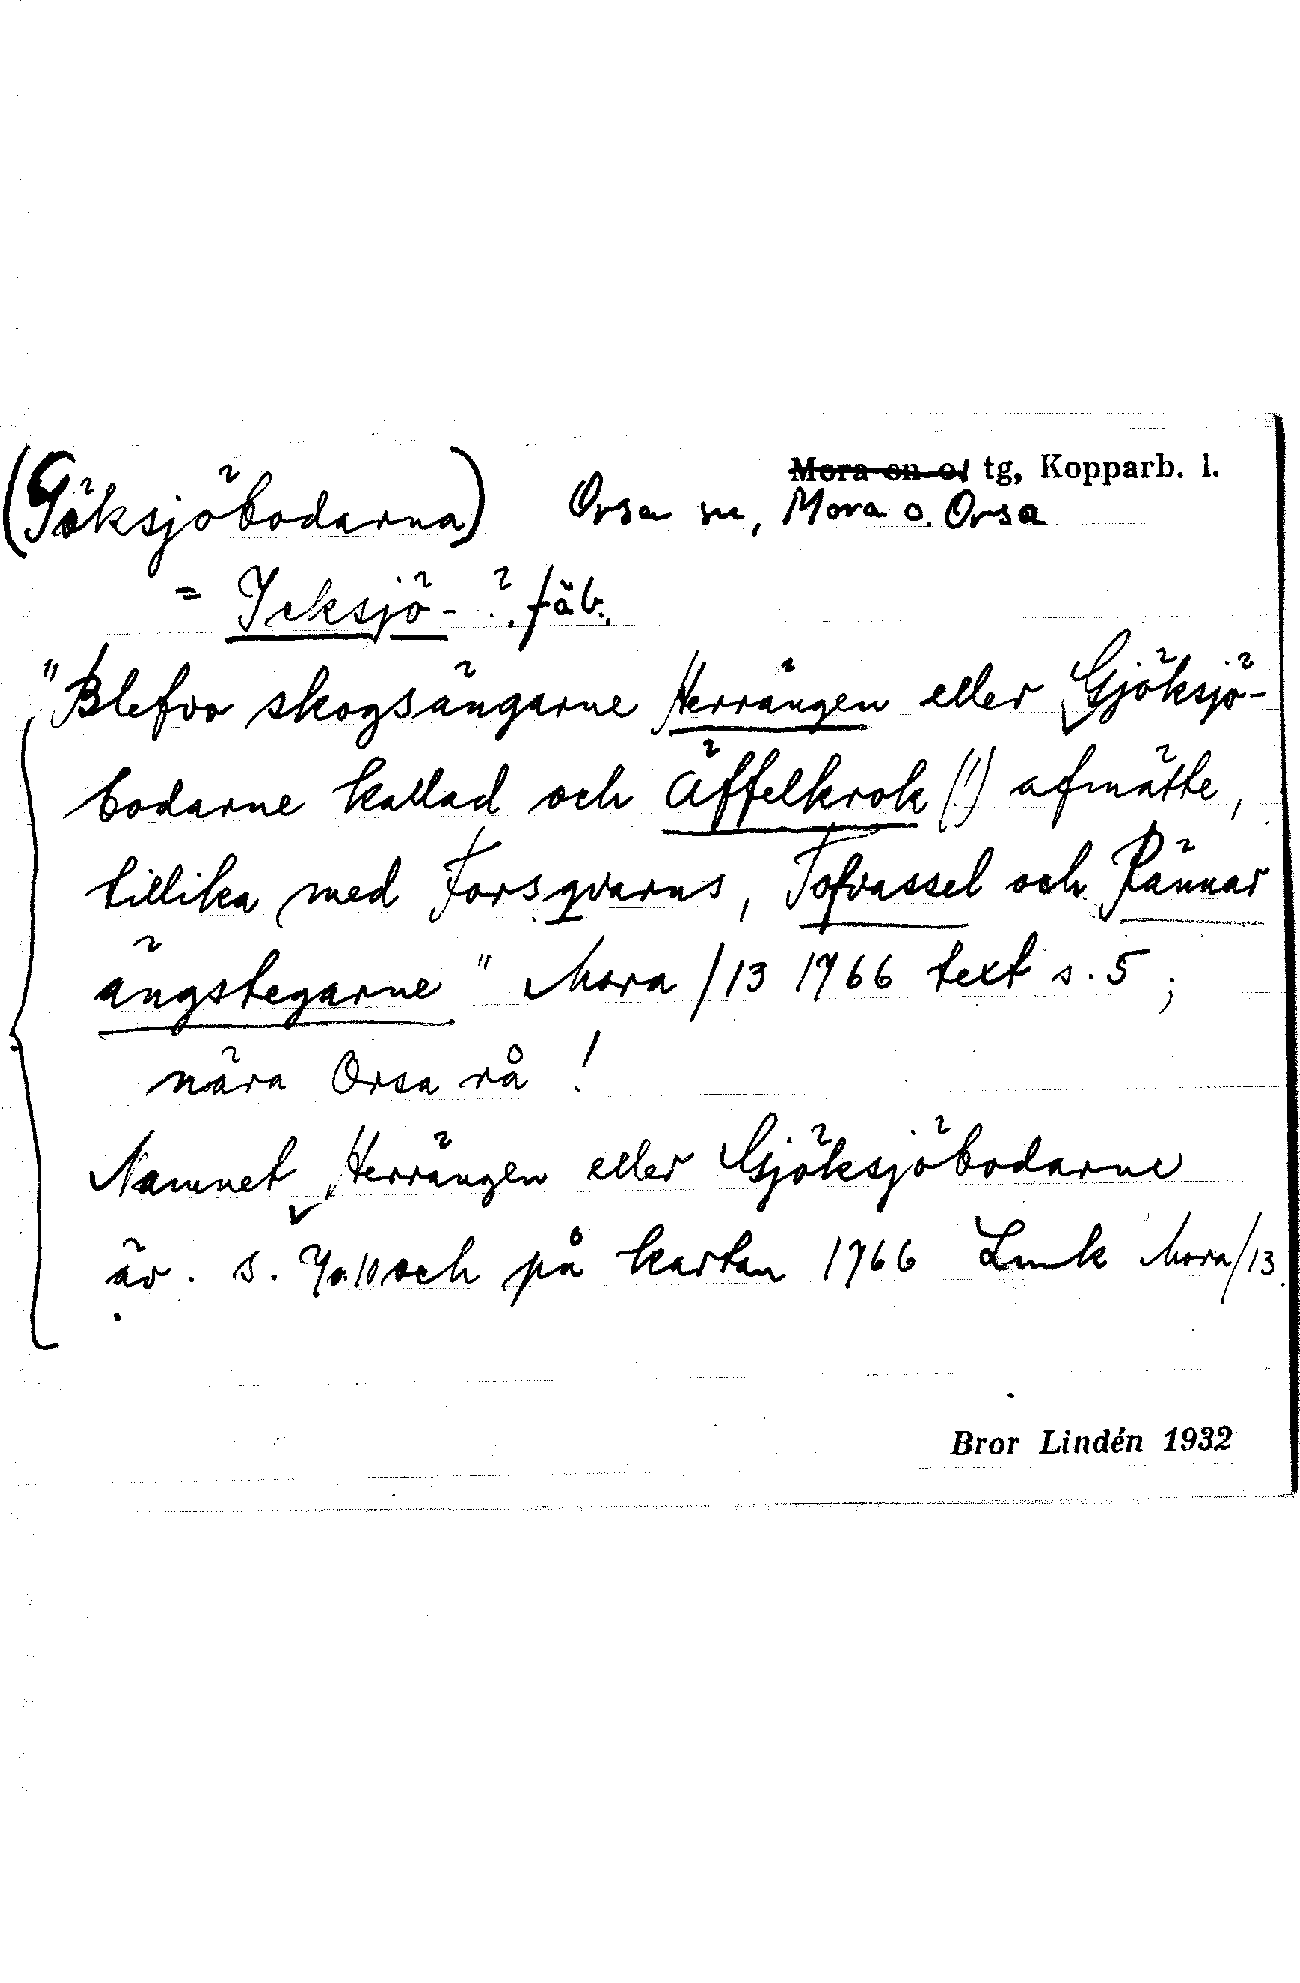 (Göksjöbodarna) Orsa sn, Mora o. Orsa
Mora sn o. tg, Kopparb. l.
= Icksjö- ? fäb.
"Blefvo skogsängarne Herrängen eller Gjöksjö-
bodarne kallad och Äffelkrok (!) afmätte,
tillika med Forsqvarns, Tofvassel och Rännar
ängstegarne" Mora /13 1766 text s. 5;
nära Orsa rå!
Namnet Herrängen eller Gjöksjöbodarne
är. s. 7 o. 10 och på kartan 1766 Lmk Mora/13
Bror Lindén 1932